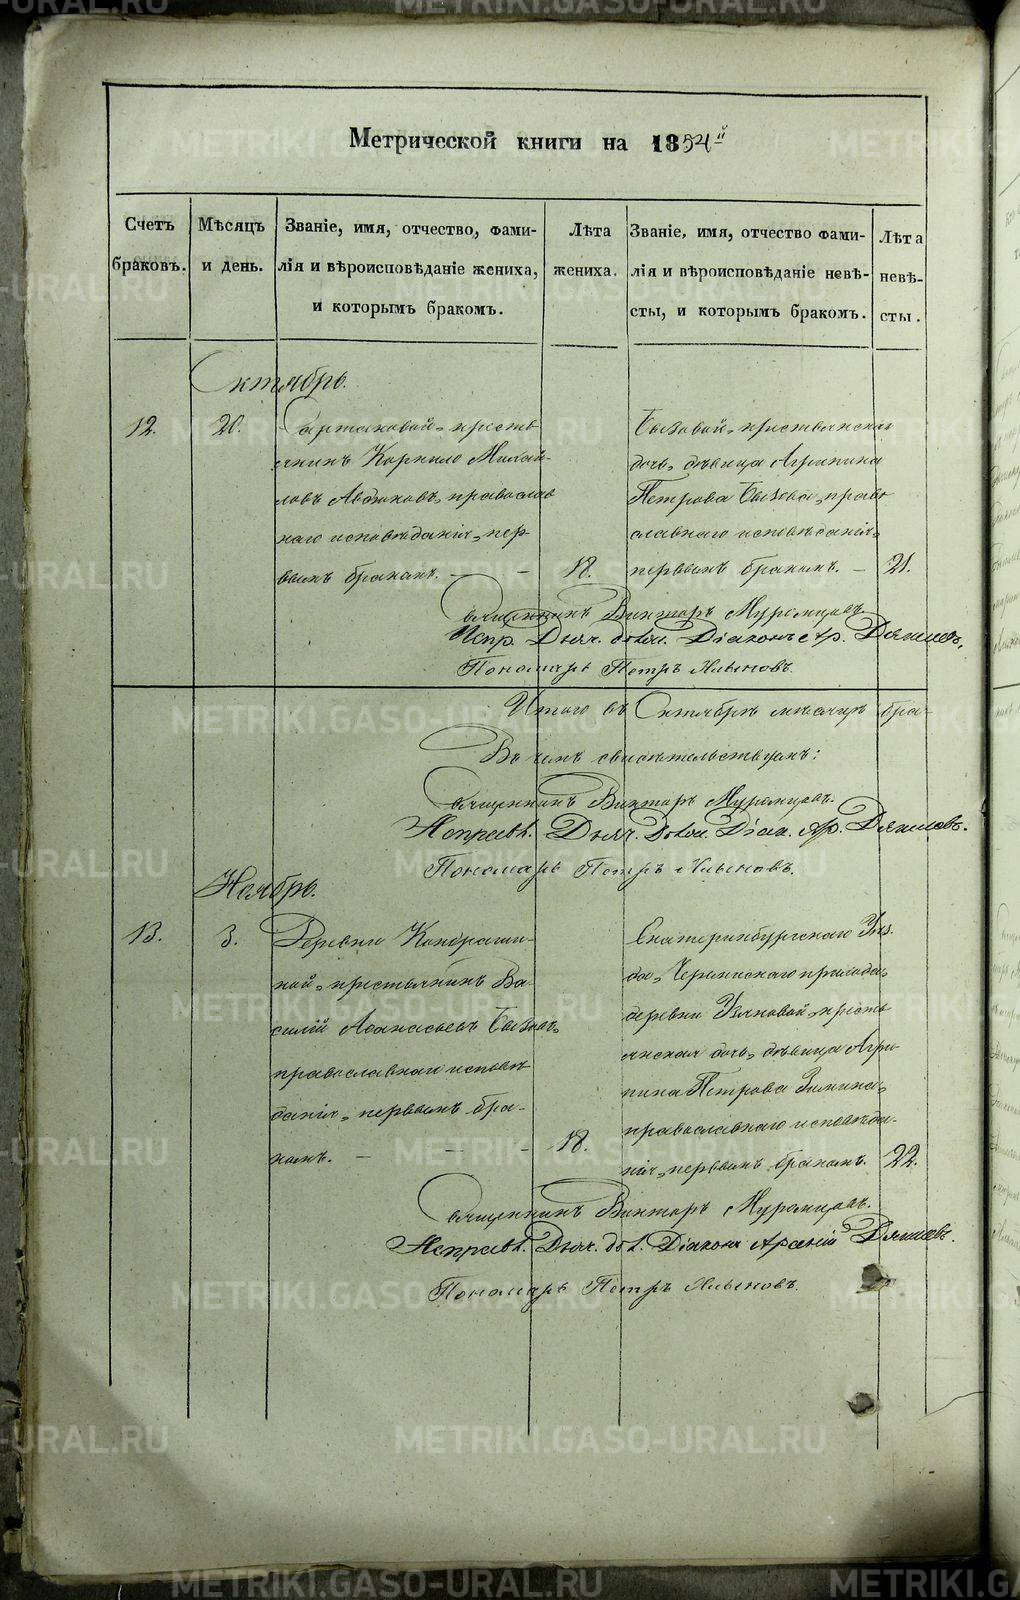 Метрической книги на 1854й
Счетъ браковъ.
Мѣсяцъ и день.
Званіе, имя, отчество, фами-
лія и вѣроисповѣданіе жениха,
и которымъ бракомъ.
Лѣта жениха.
Званіе, имя, отчество фами-
лія и вѣроисповѣданіе невѣ-
сты, и которымъ бракомъ.
Лѣта невѣ-
сты.
Октябрь.
12.
20.
кресть
янинъ Корнило Михай-
ловъ православ
наго исповѣданія, пер
вымъ бракомъ. — —
18.
крестьянская
дочь, дѣвица Агрипина
Петрова право
славнаго исповѣданія,
первымъ бракомъ. —
21.
Священникъ Викторъ Муромцовъ
Испр. Дьяч. долж. Діаконъ Ар.
Пономарь Петръ
Итого въ Октябрѣ мѣсяцѣ бра-
Въ чемъ свидѣтельствуемъ:
Священникъ Викторъ Муромцовъ.
Исправл. Дьяч. долж. Діак. Ар.
Пономарь Петръ
Ноябрь.
13.
3.
Деревни Кондраши-
ной, крестьянинъ Ва-
силій Аѳанасьевъ
православнаго исповѣ
данія, первымъ бра-
комъ. — — —
18.
Екатеринбургскаго Уѣз.
да, прихода,
деревни кресть
янская дочь, дѣвица Агри-
пина Петрова Зимина,
православнаго исповѣда-
нія, первымъ бракомъ.
22.
Священникъ Викторъ Муромцовъ.
Исправл. Дьяч. дол. Діаконъ Арсеній
Пономарь Петръ
METRIKI.GASO-URAL.RU